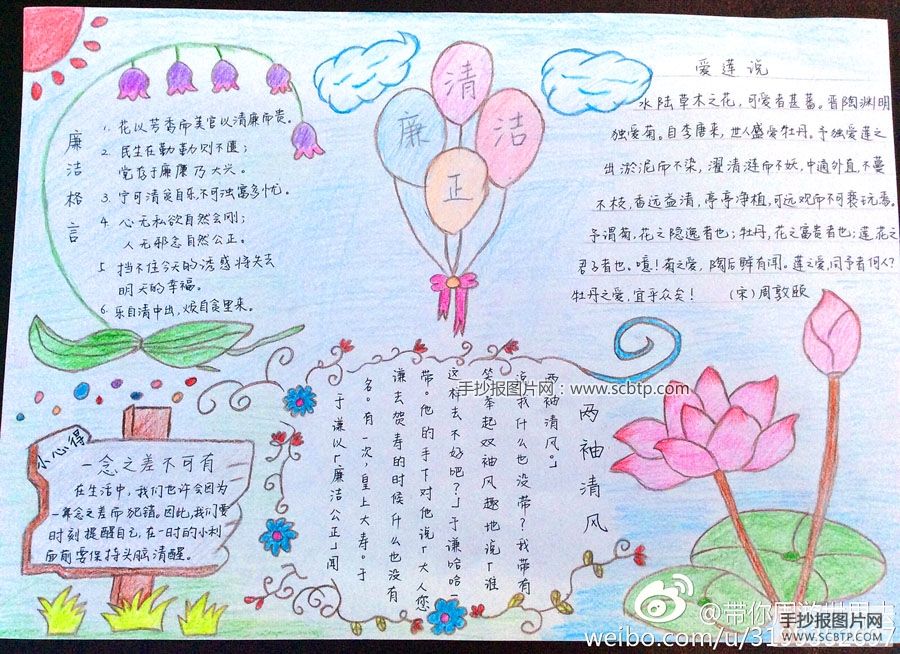 廉洁格言
1. 花以芳香而美官以清廉而贵。
2. 民生在勤勤则不匮；
党存于廉廉乃大兴。
3. 宁可清贫自乐不可浊富多忧。
4. 心无私欲自然会刚；
人无邪念自然公正。
5. 挡不住今天的诱惑将失去
明天的幸福。
6. 乐自清中出，烦自贪里来。
清
廉
洁
正
爱莲说
水陆草木之花，可爱者甚蕃。晋陶渊明
独爱菊。自李唐来，世人盛爱牡丹。予独爱莲之
出淤泥而不染，濯清涟而不妖，中通外直，不蔓
不枝，香远益清，亭亭净植，可远观而不可亵玩焉。
予谓菊，花之隐逸者也；牡丹，花之富贵者也；莲花之
君子者也。噫！菊之爱，陶后鲜有闻。莲之爱，同予者何人？
牡丹之爱，宜乎众矣！ （宋）周敦颐
小心得
一念之差不可有
在生活中，我们也许会因为
一念之差而犯错。因此，我们要
时刻提醒自己，在一时的小利
面前要保持头脑清醒。
两袖清风
于谦以「廉洁公正」闻
名。有一次，皇上大寿。于
谦去贺寿的时候什么也没有
带。他的手下对他说「大人您
这样去不好吧？」于谦哈哈一
笑，举起双袖风趣地说「谁
说我什么也没带？我带有
两袖清风。」
手抄报图片网：www.scbtp.com
@带你周游世界
weibo.com/u/31
手抄报图片网
WWW.SCBTP.COM